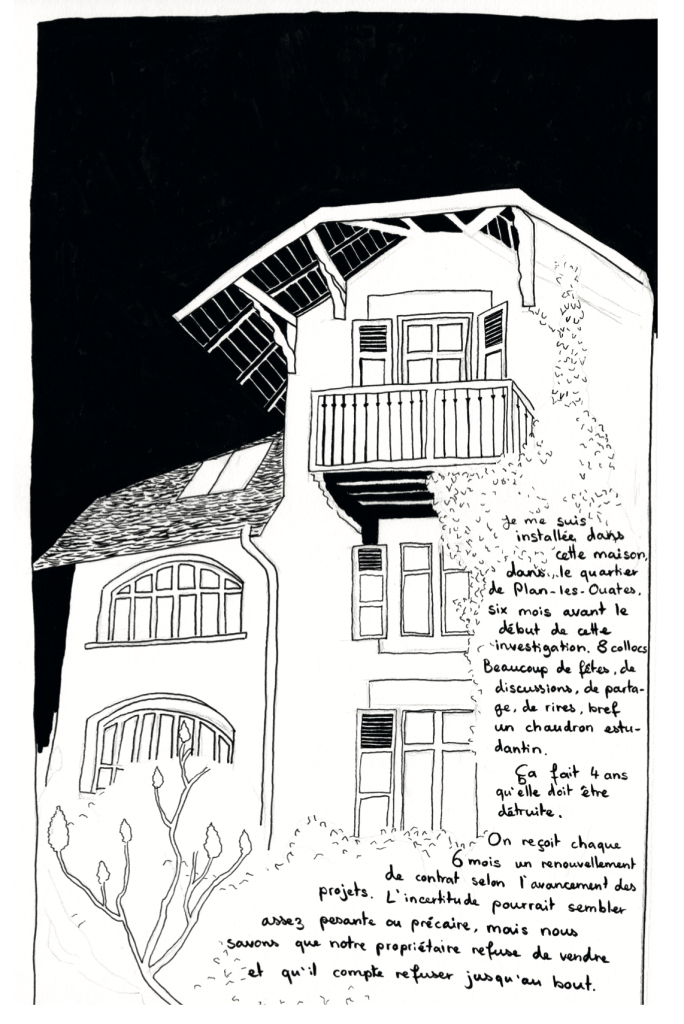 Je me suis
installée dans
cette maison,
dans le quartier
de Plan-les-Ouates,
six mois avant le
début de cette
investigation. 8 collocs
Beaucoup de fêtes, de
discussions, de parta-
ge, de rires, bref
un chaudron estu-
dantin.
Ça fait 4 ans
qu'elle doit être
détruite.
On reçoit chaque
6 mois un renouvellement
de contrat selon l'avancement des
projets. L'incertitude pourrait sembler
assez pesante ou précaire, mais nous
savons que notre propriétaire refuse de vendre
et qu'il compte refuser jusqu'au bout.